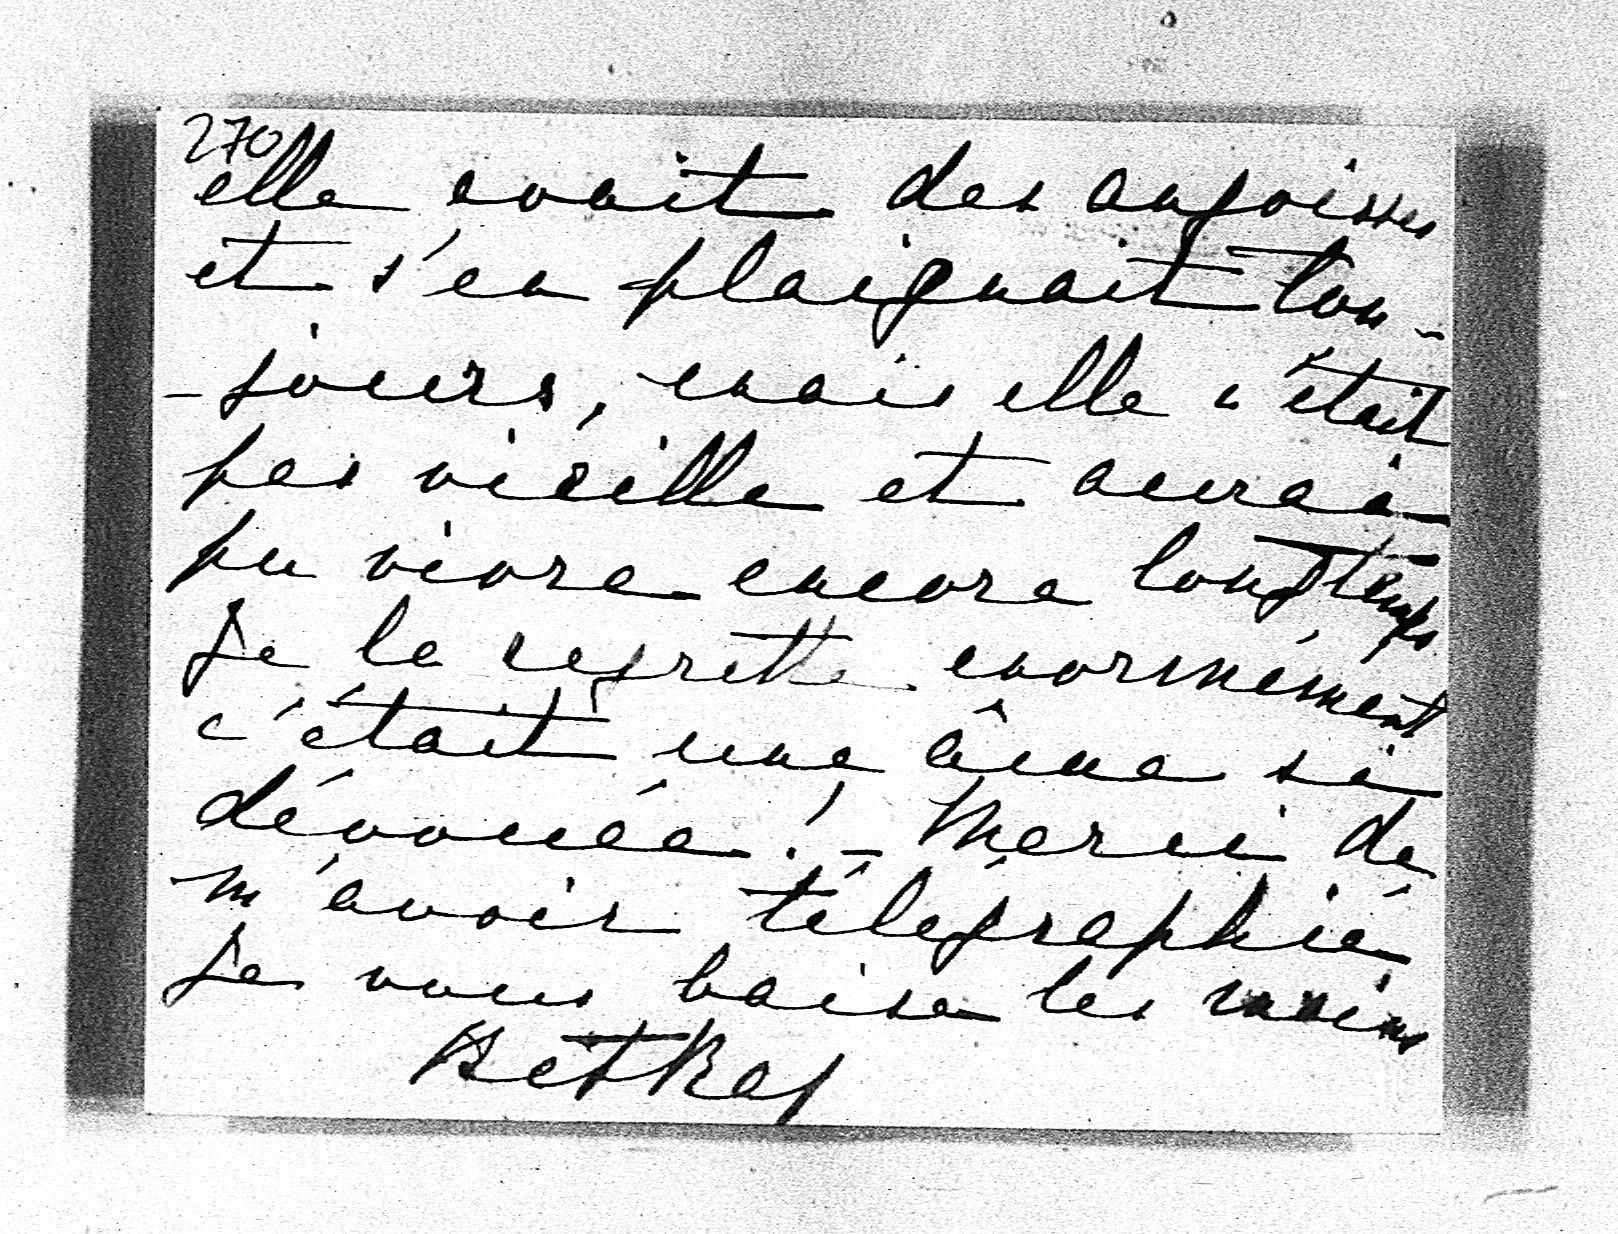 270
elle avait des angoisses
et s'en plaignait tou-
-jours, mais elle n'était
pas vieille et aurai
pu vivre encore longtemps
Je la regrette enormément
c'était une âme si
dévouée! - Merci de
m'avoir télégraphié
Je vous baise les mains